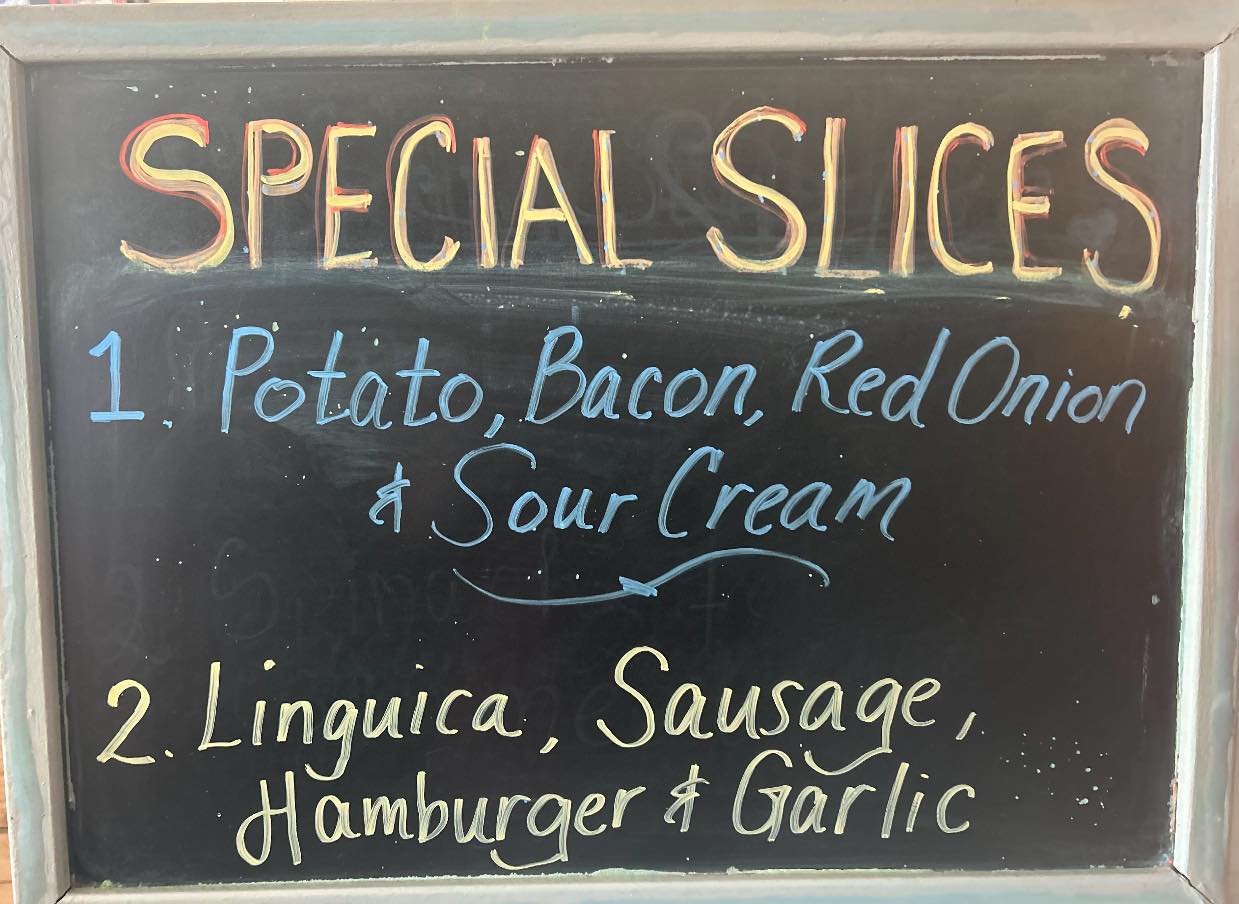 SPECIAL SLICES
1. Potato, Bacon, Red Onion
& Sour Cream
2. Linguica, Sausage,
Hamburger & Garlic